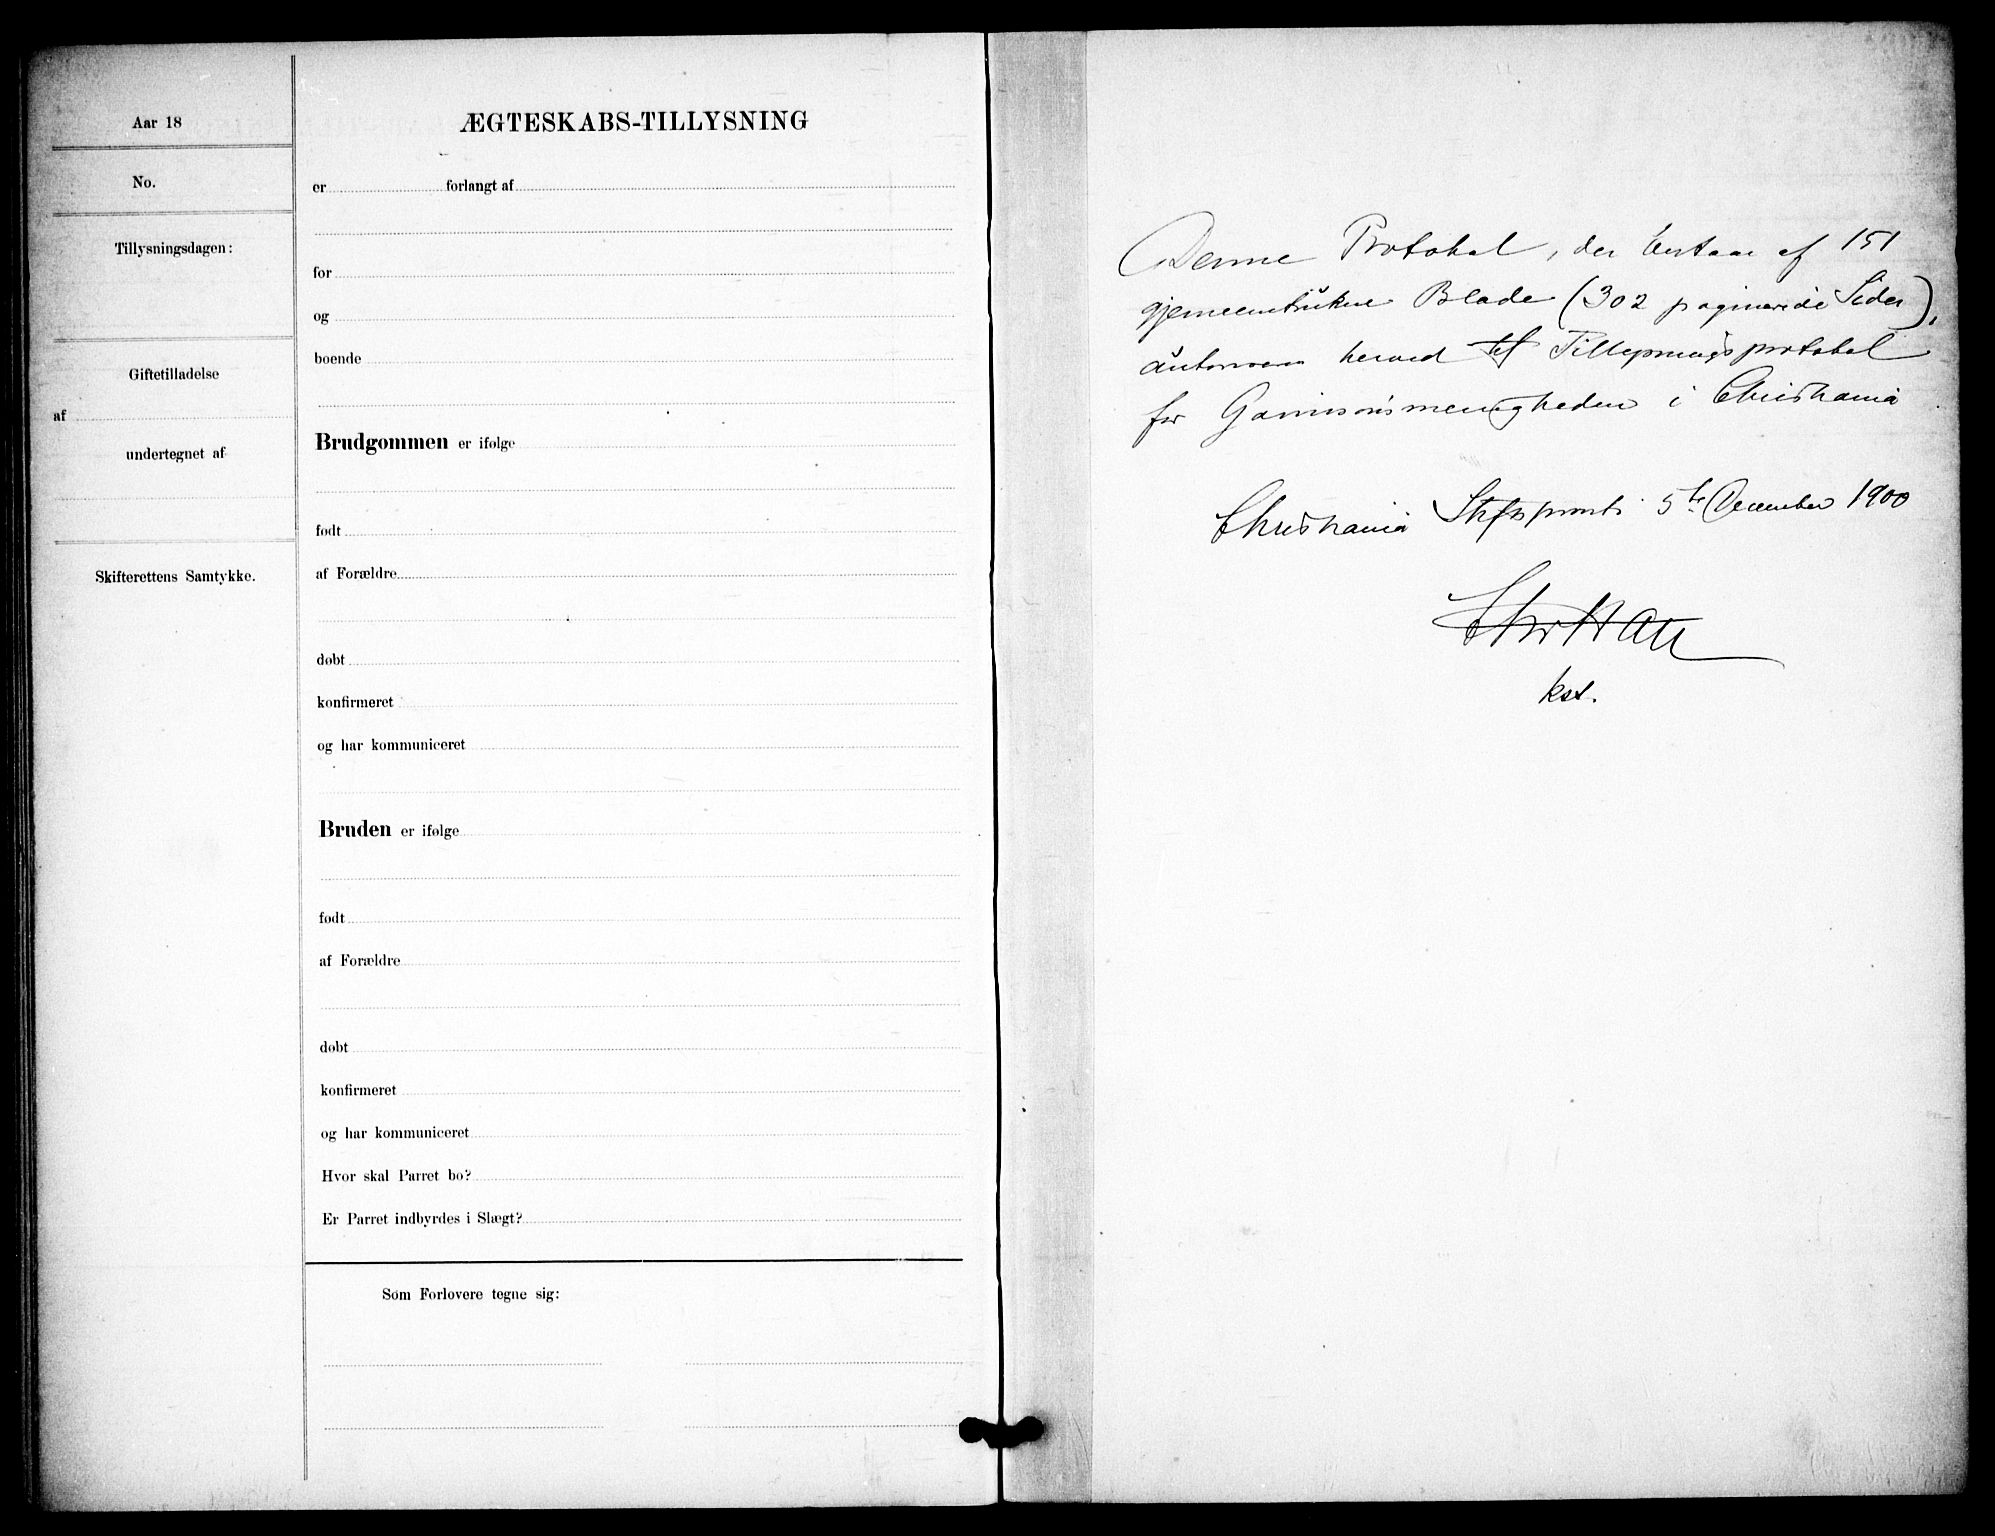 Aar 18
No.
Tillysningsdagen:
Giftetilladelse
af
undertegnet af
Skifterettens Samtykke.
ÆGTESKABS-TILLYSNING
er forlangt af
for
og
boende
Brudgommen er ifølge
født
af Forældre
døbt
konfirmeret
og har kommuniceret
Bruden er ifølge
født
af Forældre
døbt
konfirmeret
og har kommuniceret
Hvor skal Parret bo?
Er Parret indbyrdes i Slægt?
Som Forlovere tegne sig:
Denne Protokol, der bestaar af 151
gjennemtrukne Blade (302 paginerede Sider),
autoriseres herved til Tillysningsprotokol
for Garnisonsmenigheden i Christiania
Christiania Stiftsprovsti 5te December 1900
kst.